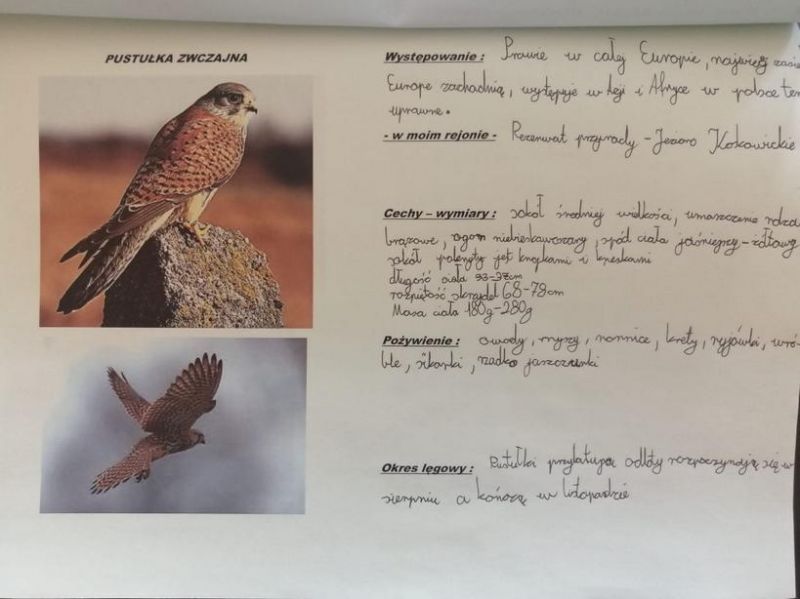 PUSTUŁKA ZWCZAJNA
Występowanie : Prawie w całej Europie, najwięcej
Europe zachodnią, występuje w Azji i Afryce w polsce
uprawne.
- w moim rejonie - Rezerwat przyrody - Jezioro Kokowickie
Cechy – wymiary : sokół średniej wielkości, umaszczenie
brązowe, ogon niebieskawoszary, spód ciała jaśniejszy - żółtawy
sokół pokryty jest kropkami i kreskami
długość ciała 33-37cm
rozpiętość skrzydeł 68-78cm
Masa ciała 180g-280g
Pożywienie : owady, myszy, nornice, krety, ryjówki, wró-
ble, sikorki, rzadko jaszczurki
Okres lęgowy : Pustułki odloty rozpoczynają się w
sierpniu a kończą w listopadzie